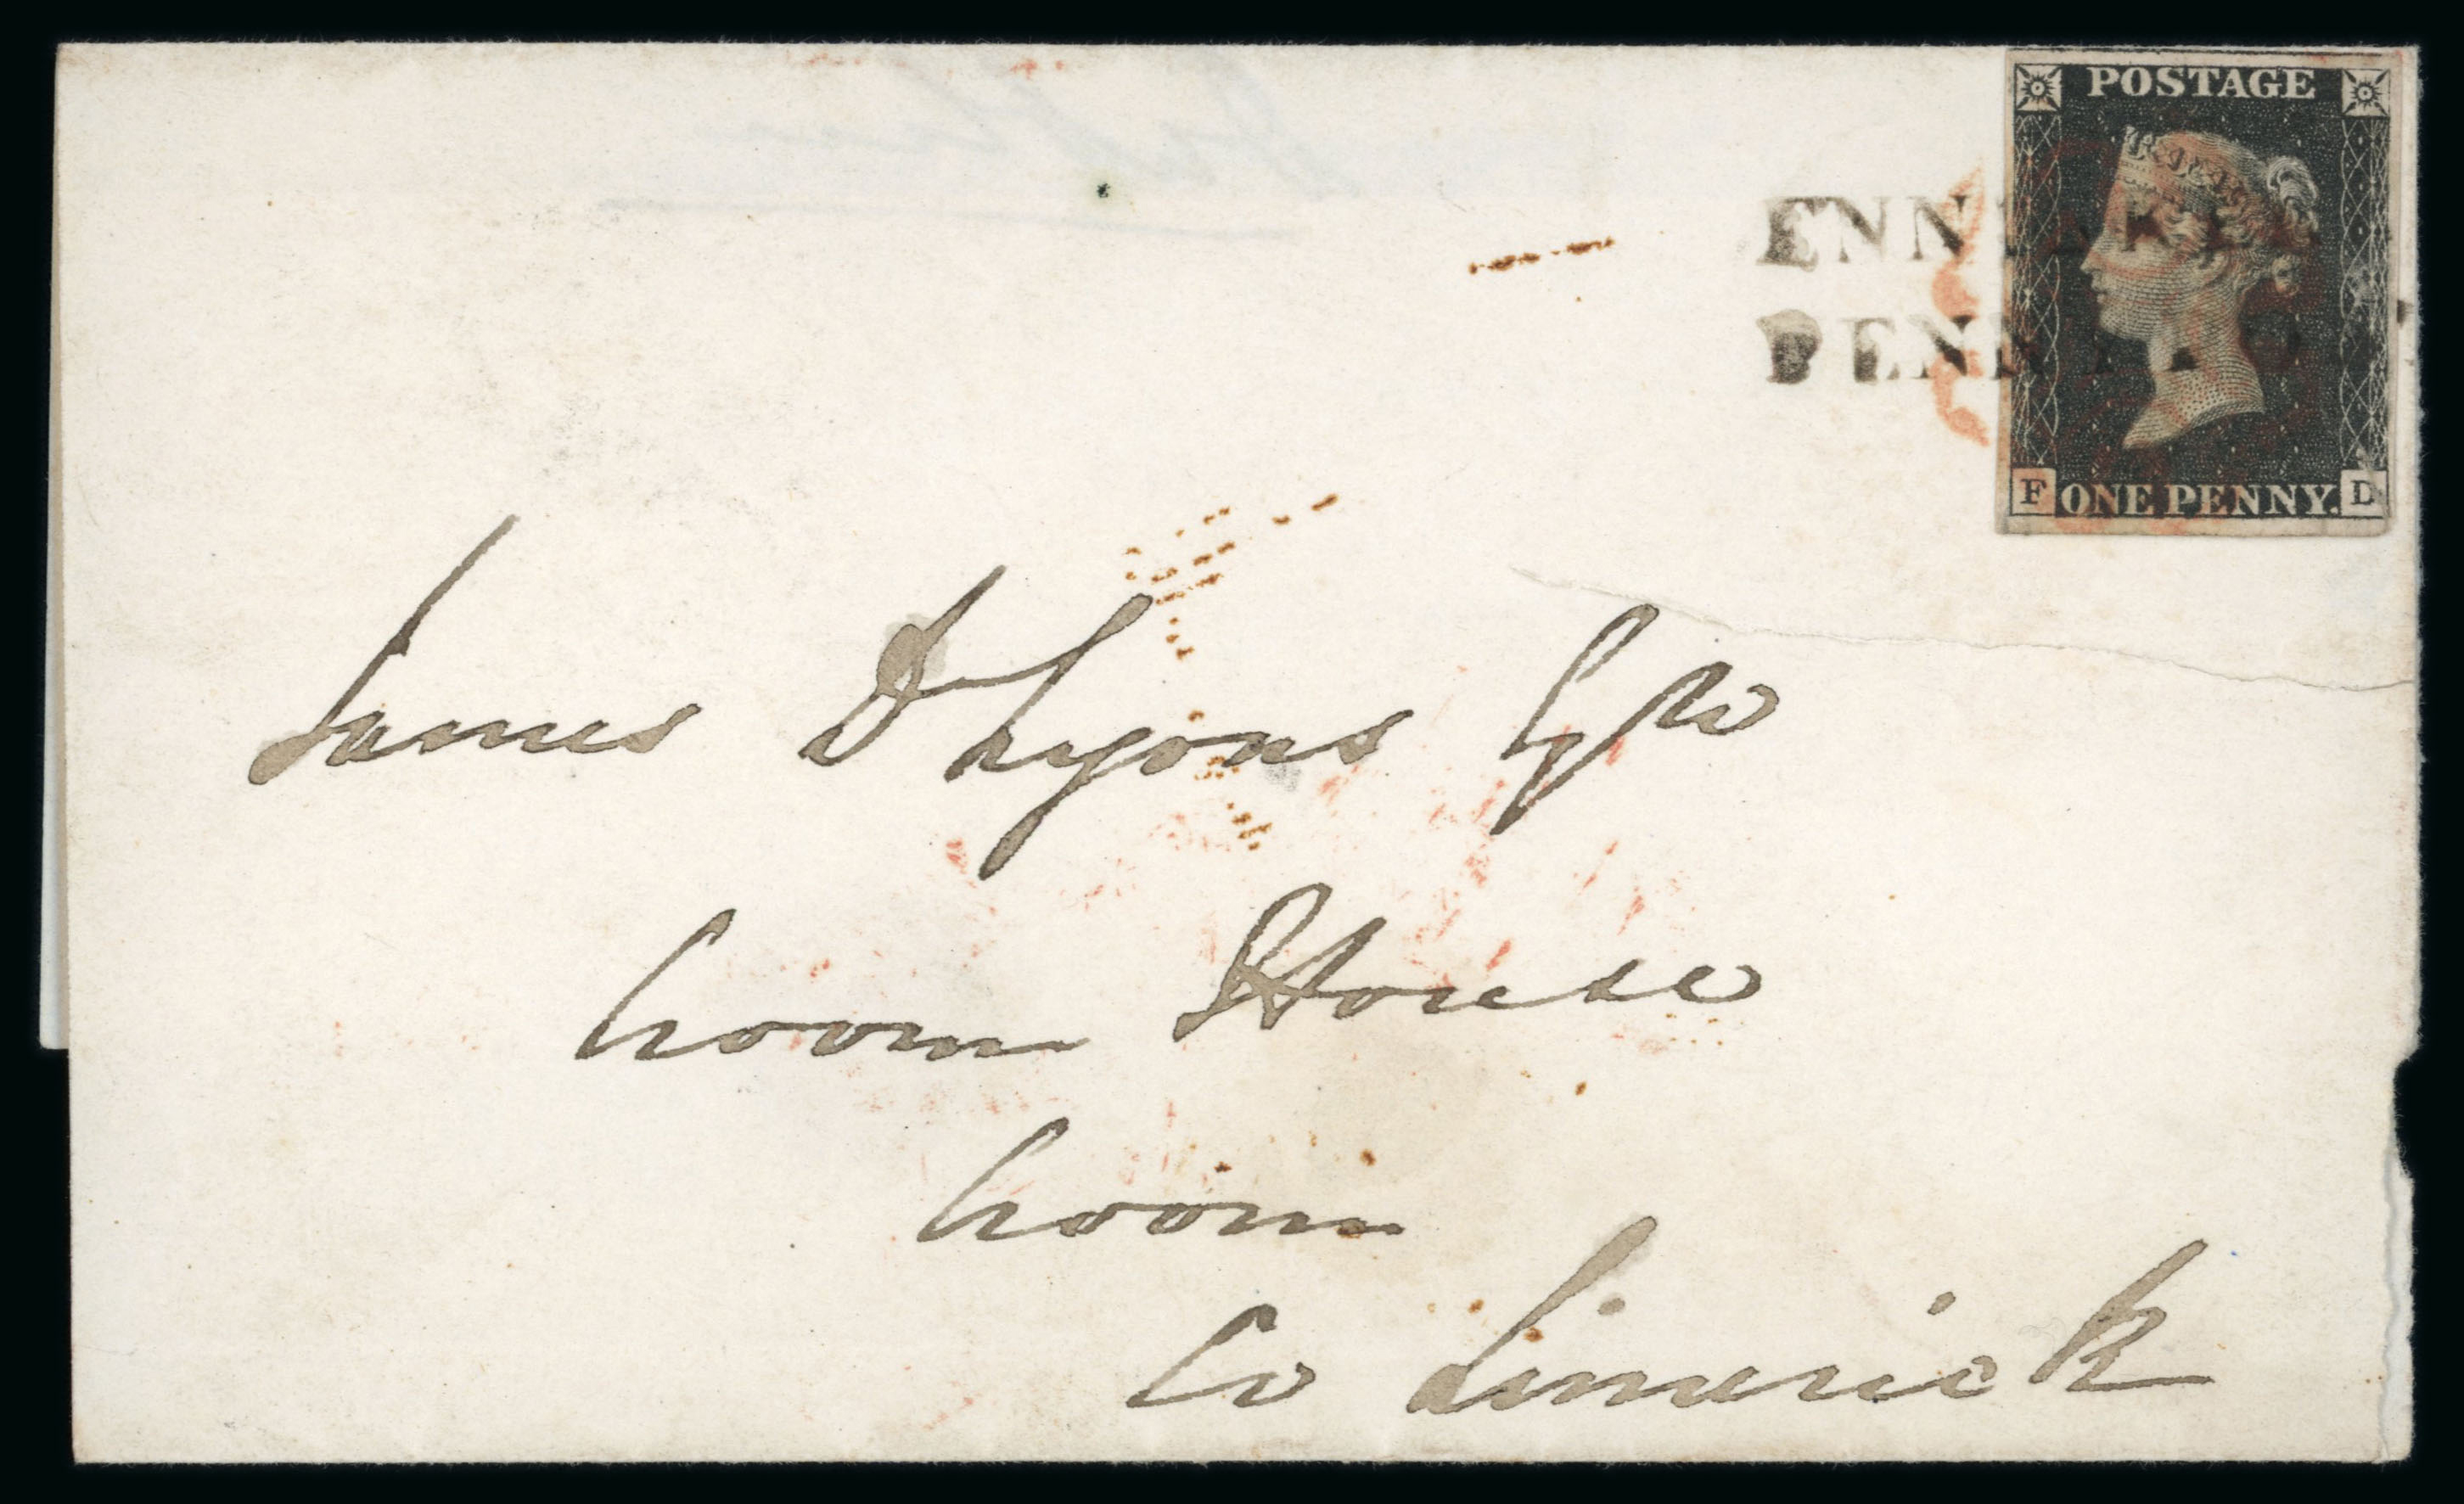 POSTAGE
PENNY PO
F ONE PENNY. D
James D Lyons Esqr
Croom House
Croom
Co Limerick